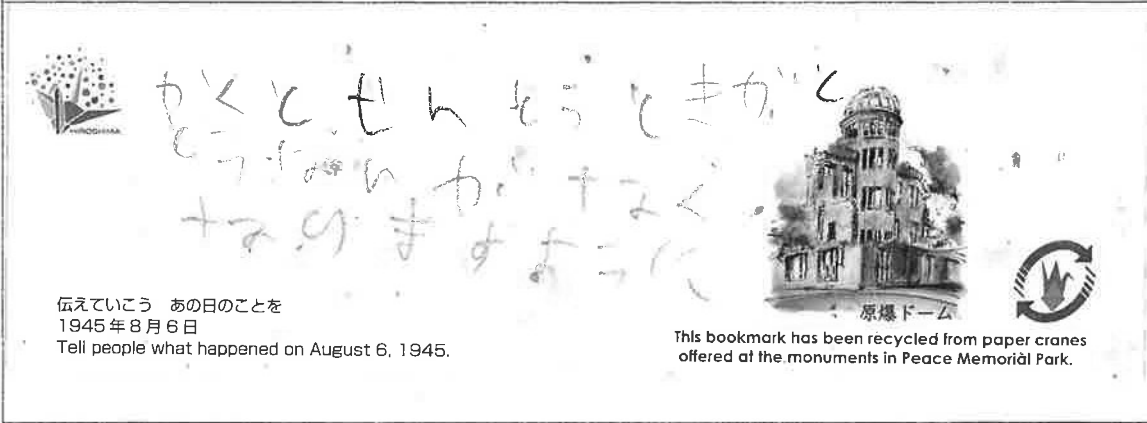 HIROSHIMA
かくとせんそうときがと
とうなんがなく
なりますように
伝えていこう　あの日のことを
1945年8月6日
Tell people what happened on August 6, 1945.
原爆ドーム
This bookmark has been recycled from paper cranes
offered at the monuments in Peace Memorial Park.